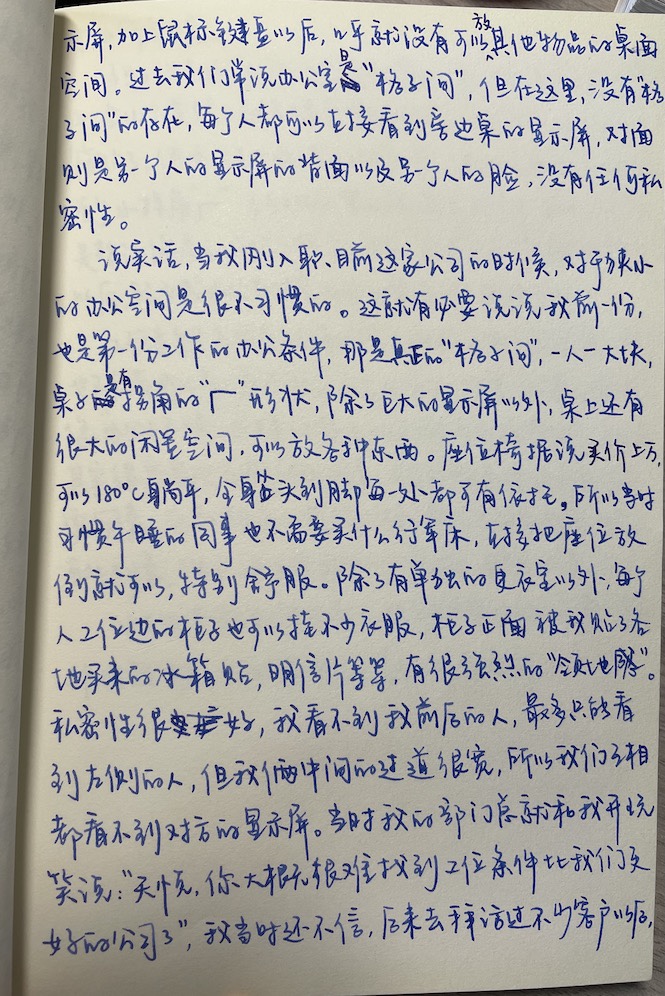 示屏,加上鼠标键盘以后,几乎就没有可以放其他物品的桌面
空间。过去我们常说办公室是“格子间”,但在这里,没有“格
子间”的存在,每个人都可以直接看到旁边桌的显示屏,对面
则是另一个人的显示屏的背面以及另一个人的脸,没有任何私
密性。
说实话,当我刚入职目前这家公司的时候,对于狭小
的办公空间是很不习惯的。这就有必要说说我前一份,
也是第一份工作的办公条件,那是真正的“格子间”,一人一大块,
桌子是有拐角的“厂”形状,除了巨大的显示屏以外,桌上还有
很大的闲置空间,可以放各种东西。座位椅据说买价上万,
可以180°C躺平,全身从头到脚每一处都可有依托。所以当时
习惯午睡的同事也不需要买什么行军床,直接把座位放
倒就可以,特别舒服。除了有单独的更衣室以外,每个
人工位边的柜子也可以挂不少衣服,柜子正面被我贴了各
地买来的冰箱贴,明信片等等,有很强烈的“领地感”。
私密性很好,我看不到我前后的人,最多只能看
到左侧的人,但我俩中间的过道很宽,所以我们互相
都看不到对方的显示屏。当时我的部门总就和我开玩
笑说:“天悦,你大概很难找到工位条件比我们更
好的公司了”,我当时还不信,后来去拜访过不少客户以后,